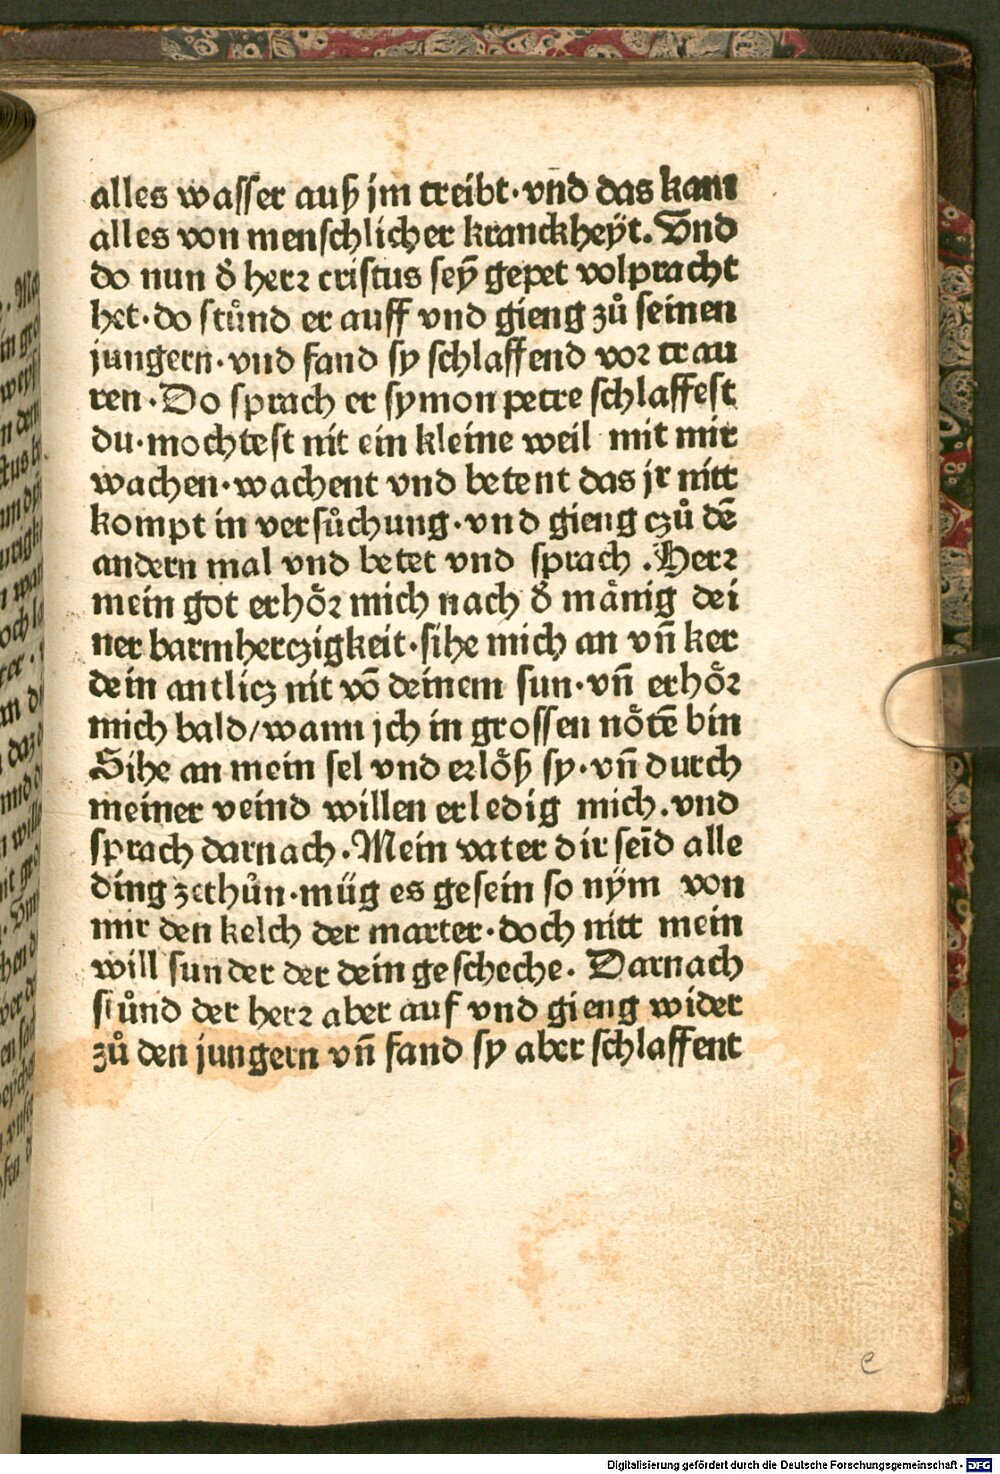 alles wasser auß jm treibt·vnd das kam
alles von menschlicher kranckheÿt. Vnd
do nun d᷑ herꝛ cristus seÿ gepet volpracht
het·do stůnd er auff vnd gieng zů seinen
jungern·vnd fand sy schlaffend voꝛ trau
ren·Do sprach er symon petre schlaffest
du·mochtest nit ein kleine weil mit mir
wachen·wachent vnd betent das jr nitt
kompt in versůchung·vnd gieng czů dē
andern mal vnd betet vnd sprach .Herꝛ
mein got erhöꝛ mich nach d᷑ mänig dei
ner barmherczigkeit·sihe mich an vn̄ ker
dein antlicz nit vō deinem sun·vn̄ erhöꝛ
mich bald/wann jch in grossen nötē bin
Sihe an mein sel vnd erlöß sy·vn̄ durch
meiner veind willen erledig mich.vnd
sprach darnach·Mein vater dir seīd alle
ding zethůn·müg es gesein so nÿm von
mir den kelch der marter·doch nitt mein
will sunder der dein gescheche· Darnach
stůnd der herꝛ aber auf vnd gieng wider
zů den jungern vn̄ fand sy aber schlaffent
e
Digitalisierung gefördert durch die Deutsche Forschungsgemeinschaft - DFG